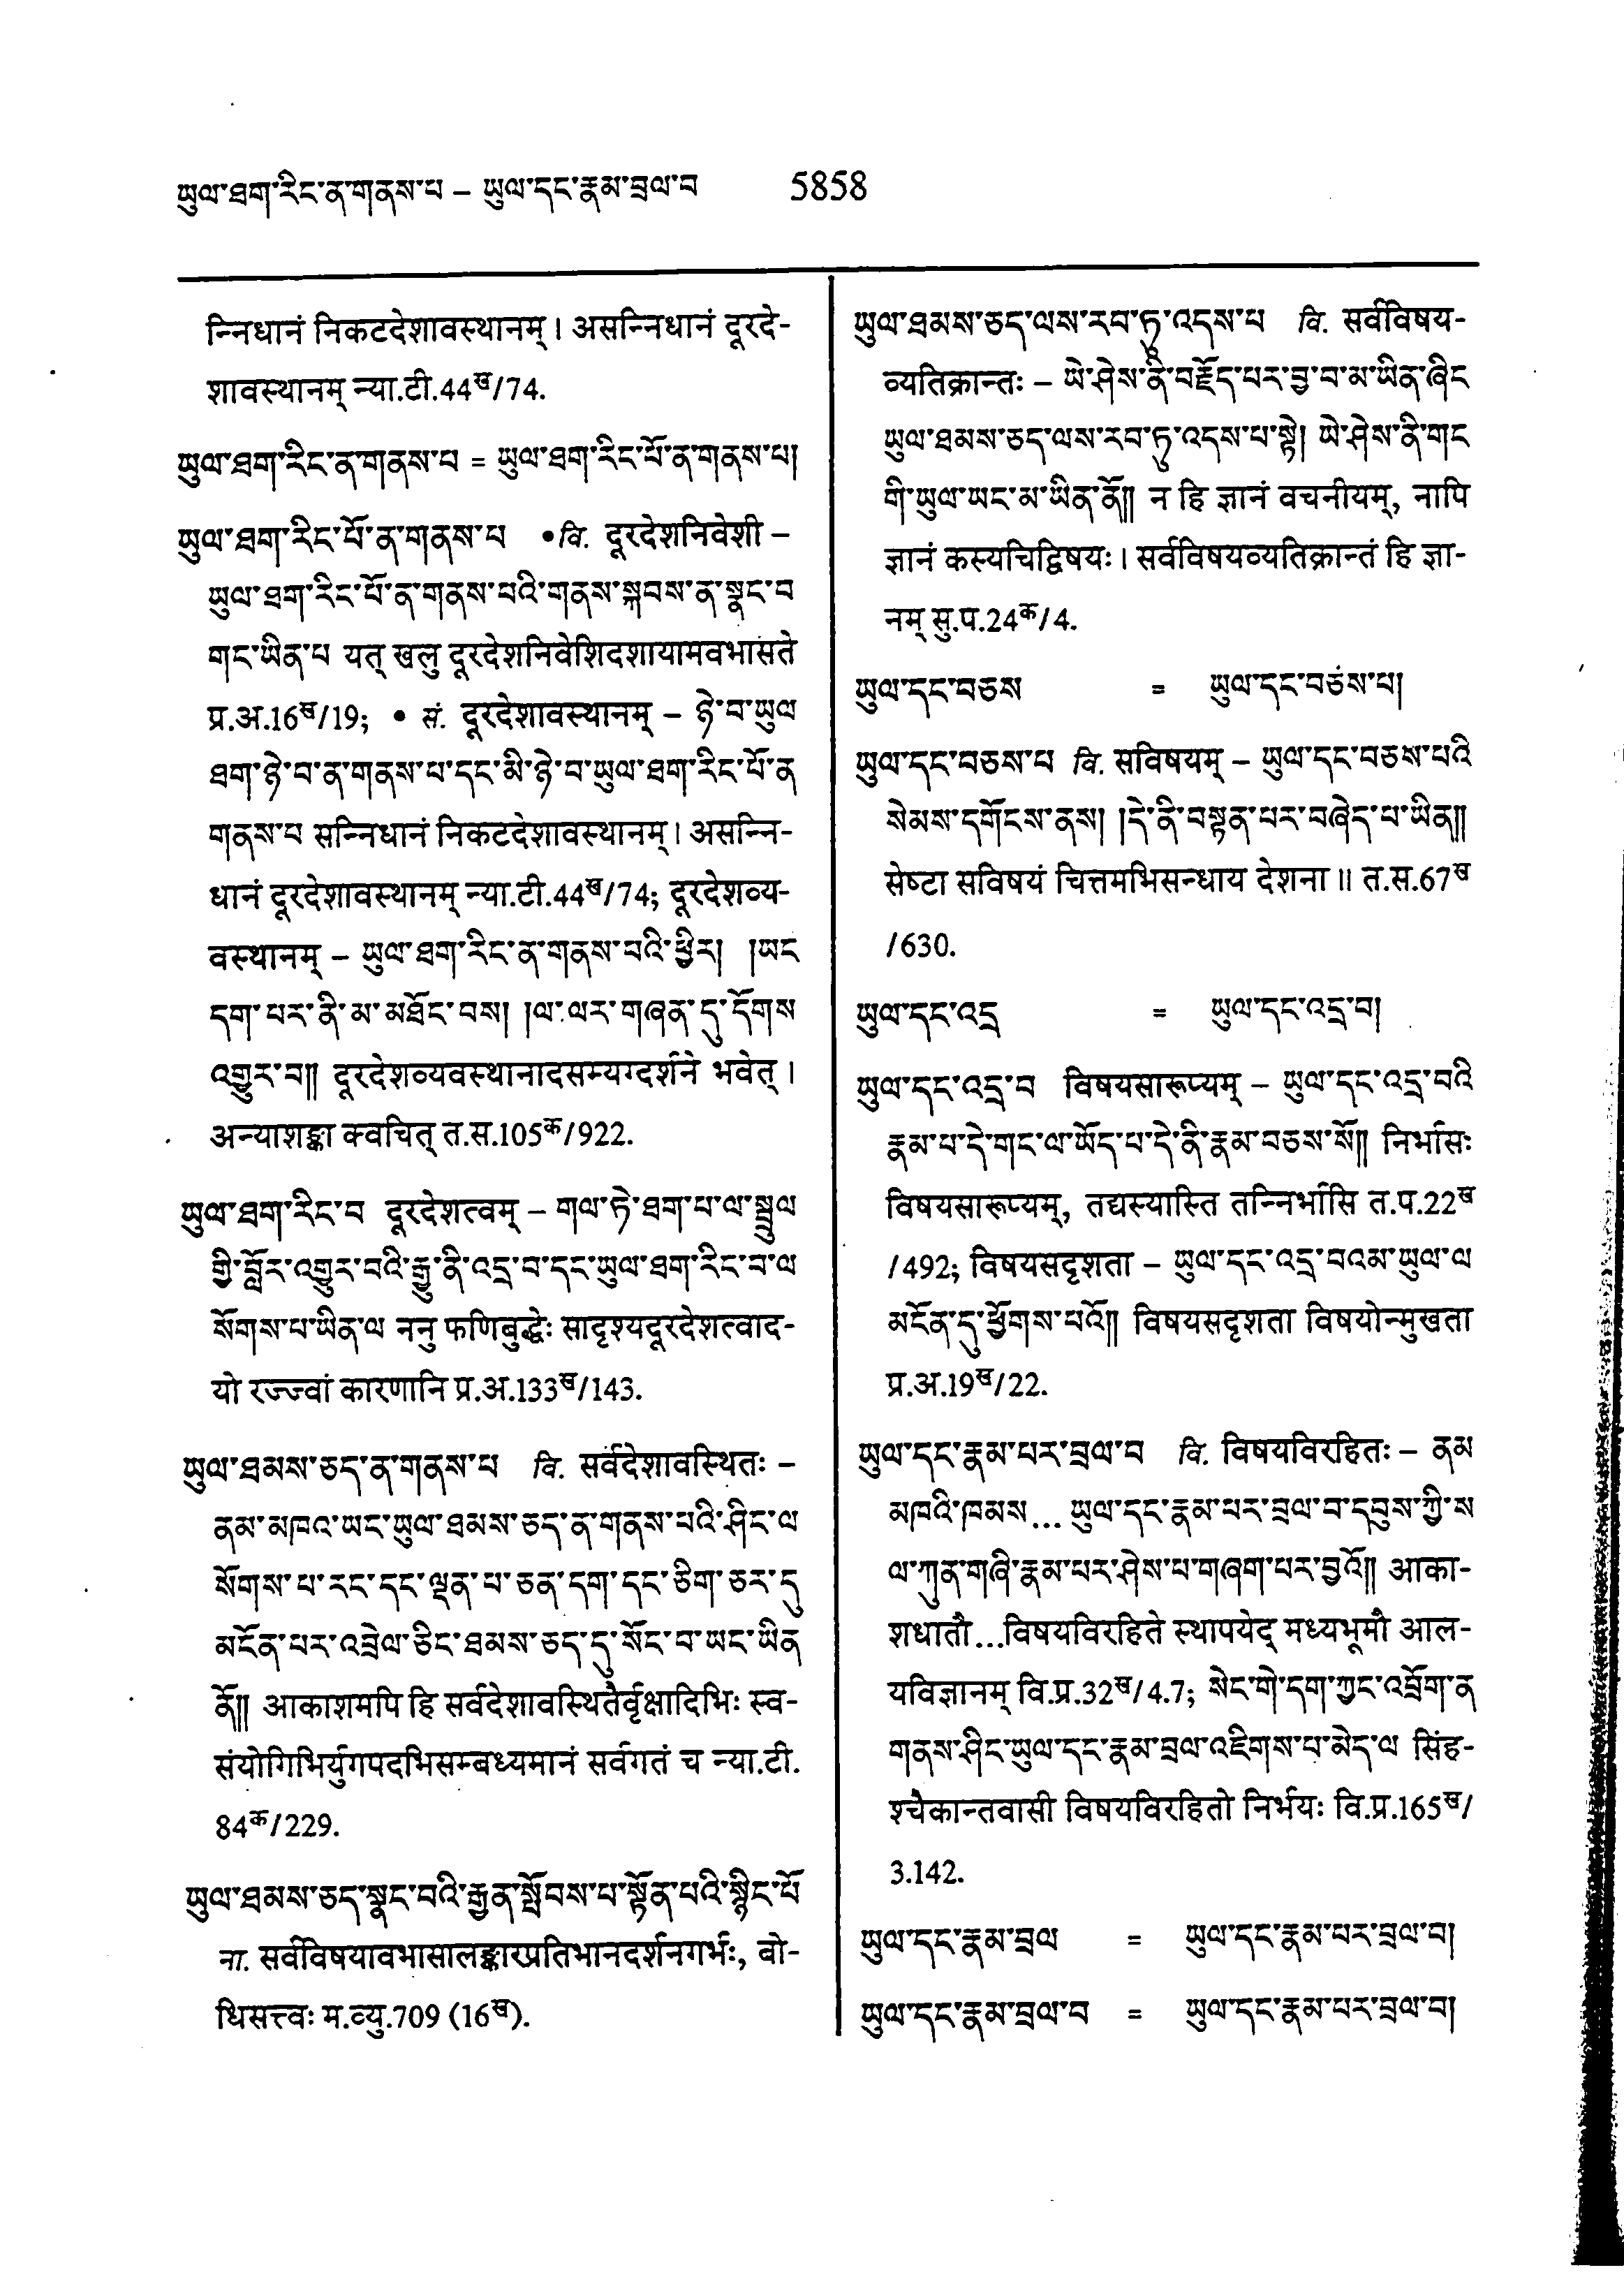 ཡུལ་ཐག་རིང་ན་གནས་པ – ཡུལ་དང་རྣམ་བྲལ་བ 5858
न्निधानं निकटदेशावस्थानम्। असन्निधानं दूरदे-
शावस्थानम् न्या.टी.44ख/74.
ཡུལ་ཐག་རིང་ན་གནས་པ = ཡུལ་ཐག་རིང་པོ་ན་གནས་པ།
ཡུལ་ཐག་རིང་པོ་ན་གནས་པ •वि. दूरदेशनिवेशी –
ཡུལ་ཐག་རིང་པོ་ན་གནས་པའི་གནས་སྐབས་ན་སྣང་བ
གང་ཡིན་པ यत् खलु दूरदेशनिवेशिदशायामवभासते
प्र.अ.16ख/19; • सं. दूरदेशावस्थानम् – ཉེ་བ་ཡུལ
ཐག་ཉེ་བ་ན་གནས་པ་དང་མི་ཉེ་བ་ཡུལ་ཐག་རིང་པོ་ན
གནས་པ सन्निधानं निकटदेशावस्थानम्। असन्नि-
धानं दूरदेशावस्थानम् न्या.टी.44ख/74; दूरदेशव्य-
वस्थानम् – ཡུལ་ཐག་རིང་ན་གནས་པའི་ཕྱིར། །ཡང
དག་པར་ནི་མ་མཐོང་བས། །ལ་ལར་གཞན་དུ་དོགས
འགྱུར་བ།། दूरदेशव्यवस्थानादसम्यग्दर्शने भवेत्।
अन्याशङ्का क्वचित् त.स.105क/922.
ཡུལ་ཐག་རིང་བ दूरदेशत्वम् – གལ་ཏེ་ཐག་པ་ལ་སྦྲུལ
གྱི་བློར་འགྱུར་བའི་རྒྱུ་ནི་འདྲ་བ་དང་ཡུལ་ཐག་རིང་བ་ལ
སོགས་པ་ཡིན་ལ ननु फणिबुद्धेः सादृश्यदूरदेशत्वाद-
यो रज्ज्वां कारणानि प्र.अ.133ख/143.
ཡུལ་ཐམས་ཅད་ན་གནས་པ वि. सर्वदेशावस्थितः –
ནམ་མཁའ་ཡང་ཡུལ་ཐམས་ཅད་ན་གནས་པའི་ཤིང་ལ
སོགས་པ་རང་དང་ལྡན་པ་ཅན་དག་དང་ཅིག་ཅར་དུ
མངོན་པར་འབྲེལ་ཅིང་ཐམས་ཅད་དུ་སོང་བ་ཡང་ཡིན
ནོ།། आकाशमपि हि सर्वदेशावस्थितैर्वृक्षादिभिः स्व-
संयोगिभिर्युगपदभिसम्बध्यमानं सर्वगतं च न्या.टी.
84क/229.
ཡུལ་ཐམས་ཅད་སྣང་བའི་རྒྱན་སྤོབས་པ་སྟོན་པའི་སྙིང་པོ
ना. सर्वविषयावभासालङ्कारप्रतिभानदर्शनगर्भः, बो-
धिसत्त्वः म.व्यु.709 (16ख).
ཡུལ་ཐམས་ཅད་ལས་རབ་ཏུ་འདས་པ वि. सर्वविषय-
व्यतिक्रान्तः – ཡེ་ཤེས་ནི་བརྗོད་པར་བྱ་བ་མ་ཡིན་ཞིང
ཡུལ་ཐམས་ཅད་ལས་རབ་ཏུ་འདས་པ་སྟེ། ཡེ་ཤེས་ནི་གང
གི་ཡུལ་ཡང་མ་ཡིན་ནོ།། न हि ज्ञानं वचनीयम्, नापि
ज्ञानं कस्यचिद्विषयः। सर्वविषयव्यतिक्रान्तं हि ज्ञा-
नम् सु.प.24क/4.
ཡུལ་དང་བཅས = ཡུལ་དང་བཅས་པ།
ཡུལ་དང་བཅས་པ वि. सविषयम् – ཡུལ་དང་བཅས་པའི
སེམས་དགོངས་ནས། །དེ་ནི་བསྟན་པར་བཞེད་པ་ཡིན།།
सेष्टा सविषयं चित्तमभिसन्धाय देशना॥ त.स.67ख
/630.
ཡུལ་དང་འདྲ = ཡུལ་དང་འདྲ་བ།
ཡུལ་དང་འདྲ་བ विषयसारूप्यम् – ཡུལ་དང་འདྲ་བའི
རྣམ་པ་དེ་གང་ལ་ཡོད་པ་དེ་ནི་རྣམ་བཅས་སོ།། निर्भासः
विषयसारूप्यम्, तद्यस्यास्ति तन्निर्भासि त.प.22ख
/492; विषयसदृशता – ཡུལ་དང་འདྲ་བའམ་ཡུལ་ལ
མངོན་དུ་ཕྱོགས་པའོ།། विषयसदृशता विषयोन्मुखता
प्र.अ.19ख/22.
ཡུལ་དང་རྣམ་པར་བྲལ་བ वि. विषयविरहितः – ནམ
མཁའི་ཁམས... ཡུལ་དང་རྣམ་པར་བྲལ་བ་དབུས་ཀྱི་ས
ལ་ཀུན་གཞི་རྣམ་པར་ཤེས་པ་གཞག་པར་བྱའོ།། आका-
शधातौ...विषयविरहिते स्थापयेद् मध्यभूमौ आल-
यविज्ञानम् वि.प्र.32ख/4.7; སེང་གེ་དག་ཀྱང་འབྲོག་ན
གནས་ཤིང་ཡུལ་དང་རྣམ་བྲལ་འཇིགས་པ་མེད་ལ सिंह-
श्चैकान्तवासी विषयविरहितो निर्भयः वि.प्र.165ख/
3.142.
ཡུལ་དང་རྣམ་བྲལ = ཡུལ་དང་རྣམ་པར་བྲལ་བ།
ཡུལ་དང་རྣམ་བྲལ་བ = ཡུལ་དང་རྣམ་པར་བྲལ་བ།